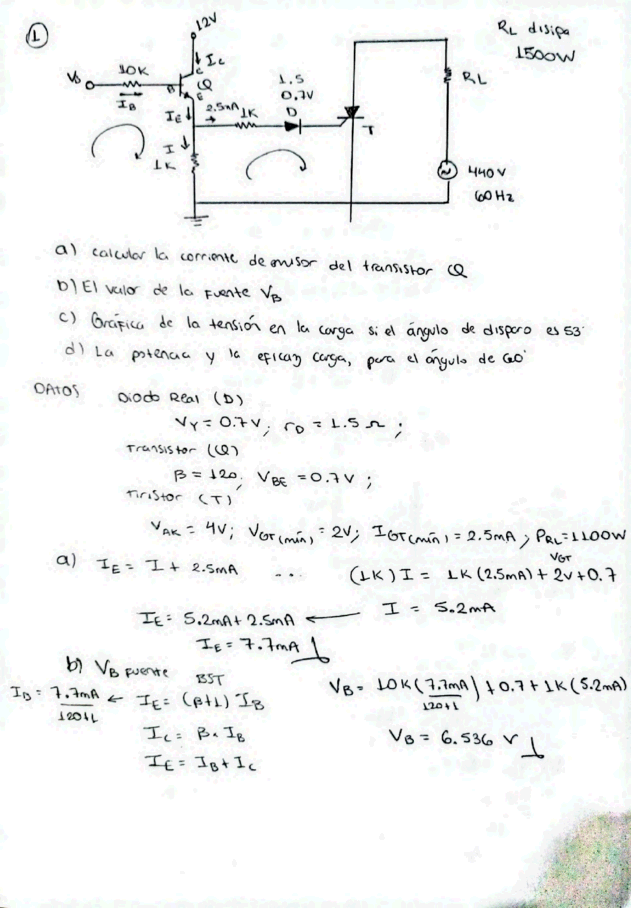 1
12V
RL disipa
1500W
IC
10K
VB
C
B
Q
E
IB
IE
2.5mA
1K
1.5
0.7V
D
T
RL
I
1K
440V
60Hz
a) calcular la corriente de emisor del transistor Q
b) El valor de la fuente VB
c) Gráfica de la tensión en la carga si el ángulo de disparo es 53°
d) La potencia y la eficaz carga, para el ángulo de 60°
DATOS Diodo Real (D)
Vγ = 0.7V; rD = 1.5 Ω ;
Transistor (Q)
β = 120; VBE = 0.7V ;
Tiristor (T)
VAK = 4V; VGT(mín) = 2V; IGT(mín) = 2.5mA ; PRL = 1100W
a) IE = I + 2.5mA ... (1K) I = 1K (2.5mA) + 2V + 0.7
VGT
IE = 5.2mA + 2.5mA ← I = 5.2mA
IE = 7.7mA
b) VB fuente
BJT
IB = 7.7mA / 120+1 ← IE = (β+1) IB
VB = 10K (7.7mA / 120+1) + 0.7 + 1K (5.2mA)
IC = β · IB
VB = 6.536 V
IE = IB + IC